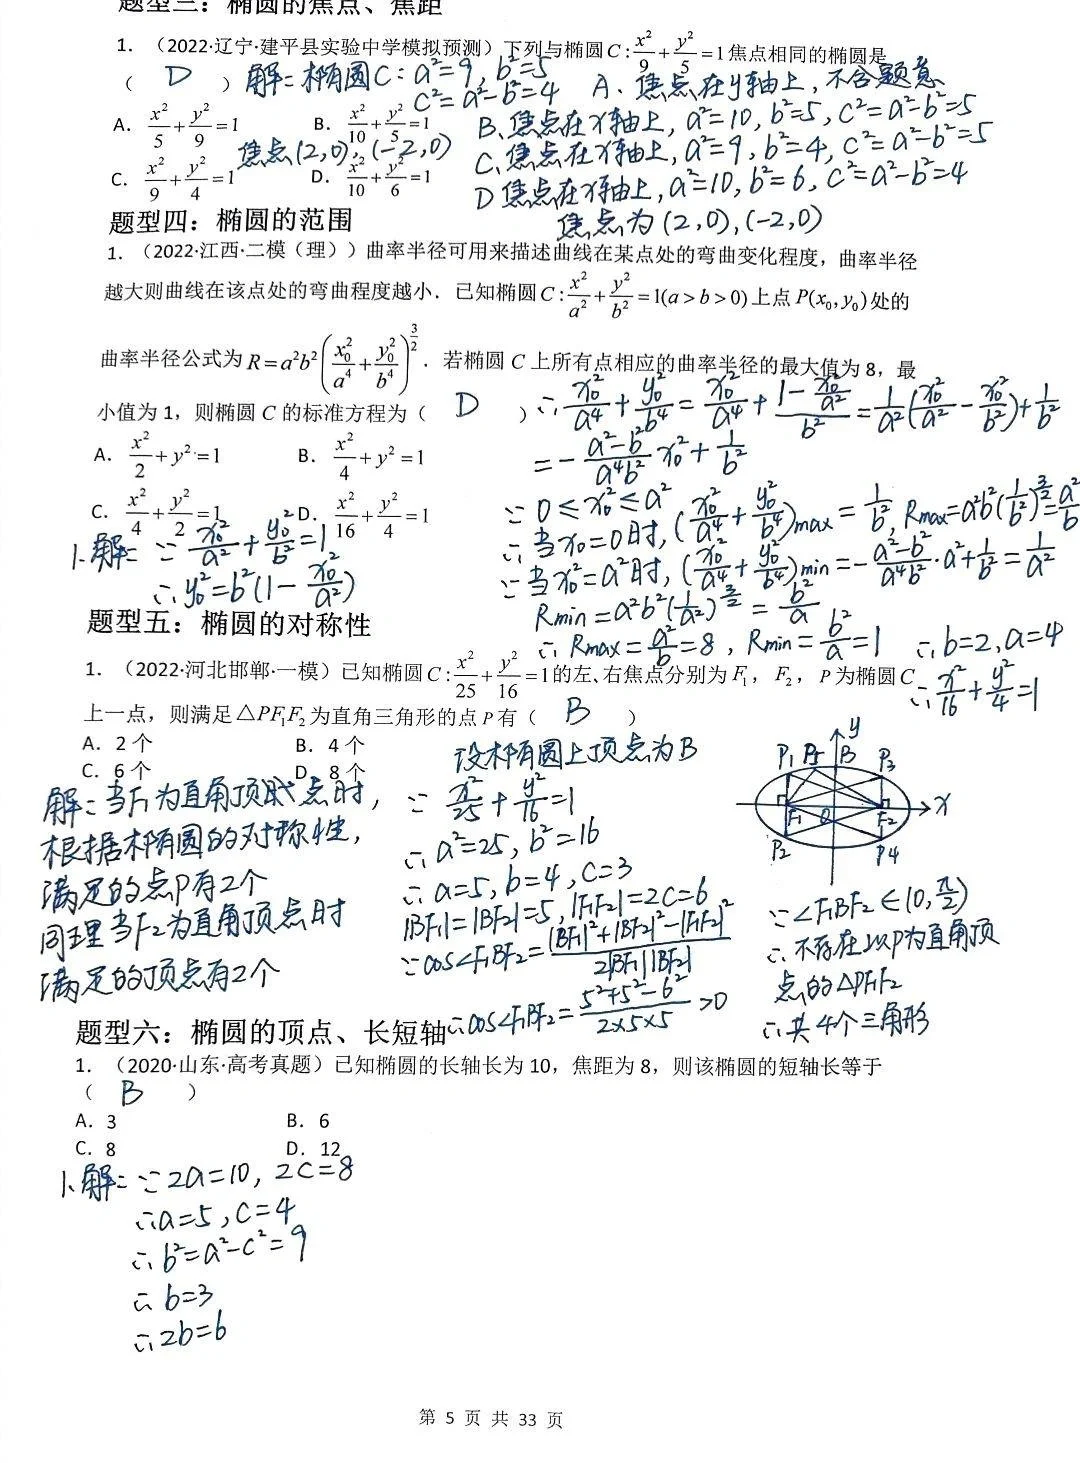 题型三：椭圆的焦点、焦距
1. （2022·辽宁·建平县实验中学模拟预测）下列与椭圆C:x²/9+y²/5=1焦点相同的椭圆是
（ D ） 解：椭圆C：a²=9，b²=5
c²=a²-b²=4
焦点(2,0)，(-2,0)
A．x²/5+y²/9=1 B．x²/10+y²/5=1
C．x²/9+y²/4=1 D．x²/10+y²/6=1
A、焦点在y轴上，不合题意
B、焦点在x轴上，a²=10，b²=5，c²=a²-b²=5
C、焦点在x轴上，a²=9，b²=4，c²=a²-b²=5
D 焦点在x轴上，a²=10，b²=6，c²=a²-b²=4
焦点为(2,0)，(-2,0)
题型四：椭圆的范围
1. （2022·江西·二模（理））曲率半径可用来描述曲线在某点处的弯曲变化程度，曲率半径
越大则曲线在该点处的弯曲程度越小．已知椭圆C:x²/a²+y²/b²=1(a>b>0)上点P(x₀,y₀)处的
曲率半径公式为R=a²b²(x₀²/a⁴+y₀²/b⁴)^(3/2)．若椭圆 C 上所有点相应的曲率半径的最大值为 8，最
小值为 1，则椭圆 C 的标准方程为（ D ）
A．x²/2+y²=1 B．x²/4+y²=1
C．x²/4+y²/2=1 D．x²/16+y²/4=1
1、解：∵x₀²/a²+y₀²/b²=1
∴y₀²=b²(1-x₀²/a²)
∴x₀²/a⁴+y₀²/b⁴=x₀²/a⁴+(1-x₀²/a²)/b²=1/a²(x₀²/a²-x₀²/b²)+1/b²
=-(a²-b²)/(a⁴b²)x₀²+1/b²
∵0≤x₀²≤a²
∴当x₀=0时，(x₀²/a⁴+y₀²/b⁴)max=1/b²，Rmax=a²b²(1/b²)^(3/2)=a²/b
∵当x₀²=a²时，(x₀²/a⁴+y₀²/b⁴)min=-(a²-b²)/(a⁴b²)·a²+1/b²=1/a²
Rmin=a²b²(1/a²)^(3/2)=b²/a
∴Rmax=a²/b=8，Rmin=b²/a=1 ∴b=2，a=4
∴x²/16+y²/4=1
题型五：椭圆的对称性
1. （2022·河北邯郸·一模）已知椭圆C:x²/25+y²/16=1的左、右焦点分别为F₁，F₂，P为椭圆C
上一点，则满足△PF₁F₂为直角三角形的点P有（ B ）
A．2 个 B．4 个
C．6 个 D．8 个
解：当F₁为直角顶点时，
根据椭圆的对称性，
满足的点P有2个
同理当F₂为直角顶点时
满足的顶点有2个
设椭圆上顶点为B
∵x²/25+y²/16=1
∴a²=25，b²=16
∴a=5，b=4，c=3
|BF₁|=|BF₂|=5，|F₁F₂|=2c=6
∵cos∠F₁BF₂=(|BF₁|²+|BF₂|²-|F₁F₂|²)/(2|BF₁||BF₂|)
∴cos∠F₁BF₂=(5²+5²-6²)/(2×5×5)>0
y
P₁ B P₃
F₁ O F₂ x
P₂ P₄
∵∠F₁BF₂∈(0,π/2)
∴不存在以P为直角顶
点的△PF₁F₂
∴共4个三角形
题型六：椭圆的顶点、长短轴
1. （2020·山东·高考真题）已知椭圆的长轴长为 10，焦距为 8，则该椭圆的短轴长等于
（ B ）
A．3 B．6
C．8 D．12
1、解：∵2a=10，2c=8
∴a=5，c=4
∴b²=a²-c²=9
∴b=3
∴2b=6
第 5 页 共 33 页